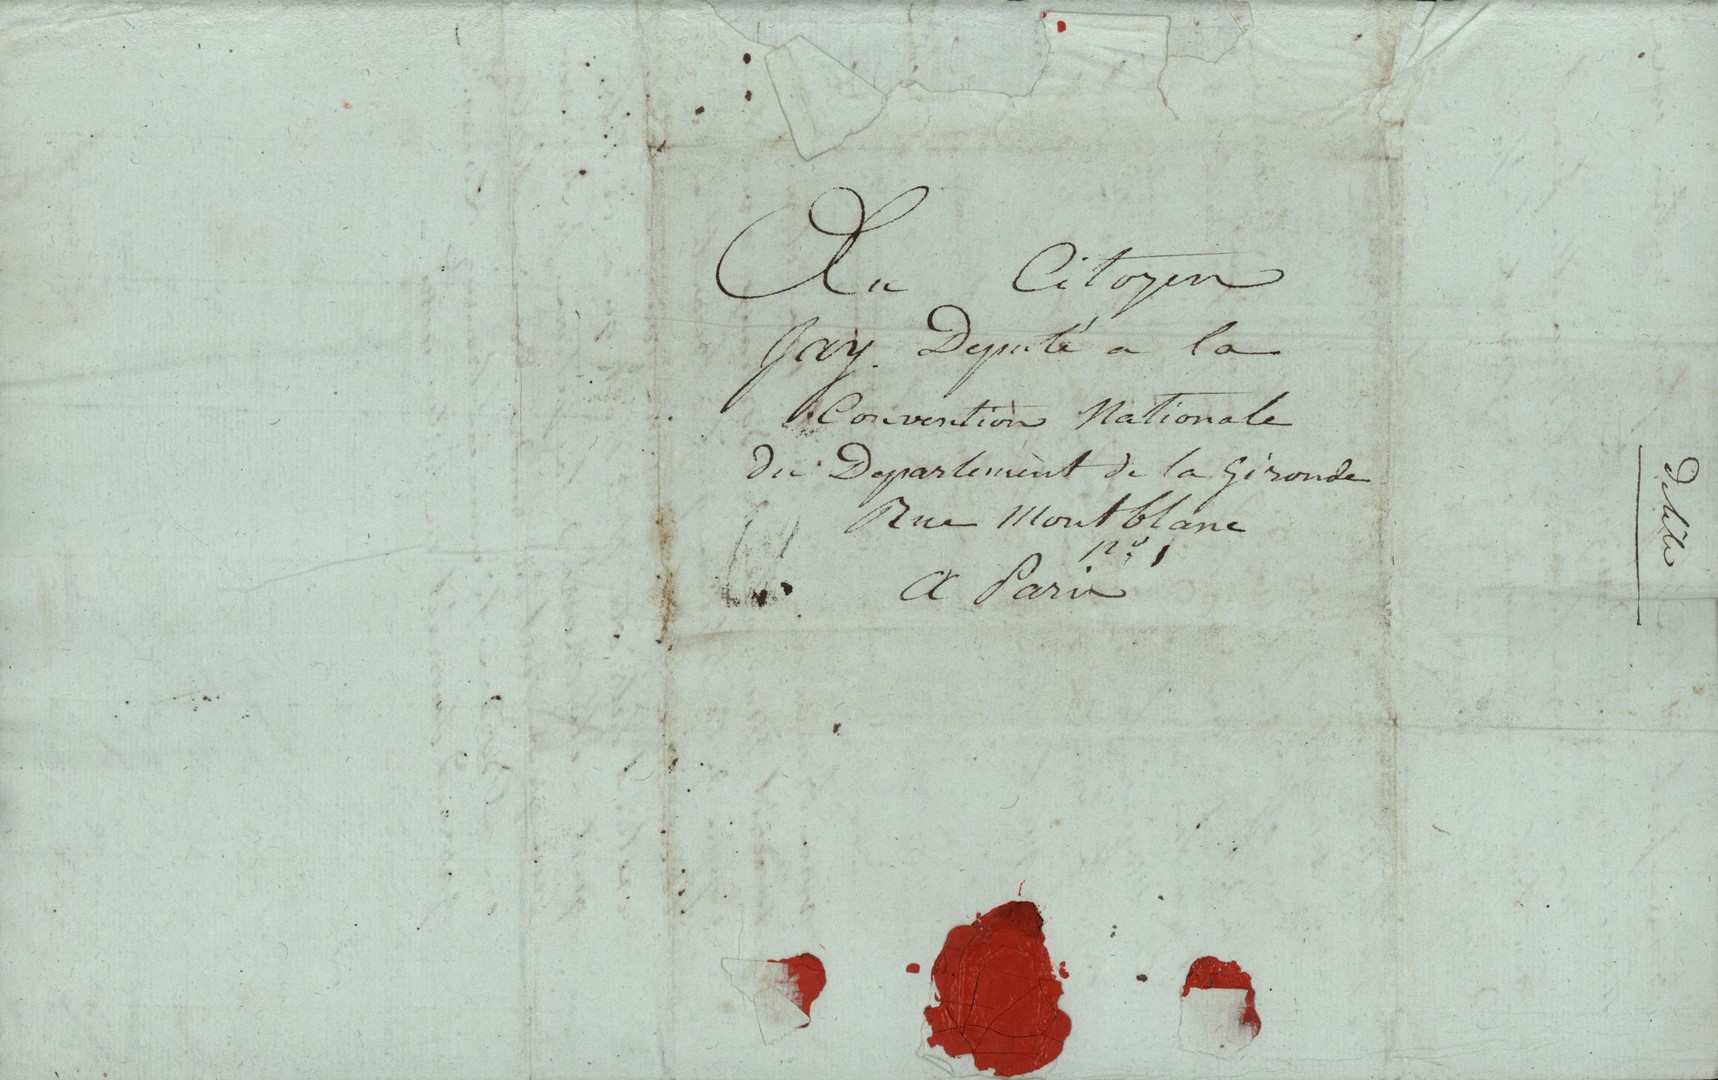 Au Citoyen
Jay Deputé a la
Convention Nationale
du Departement de la Gironde
Rue Montblanc
nº. 1
A Paris